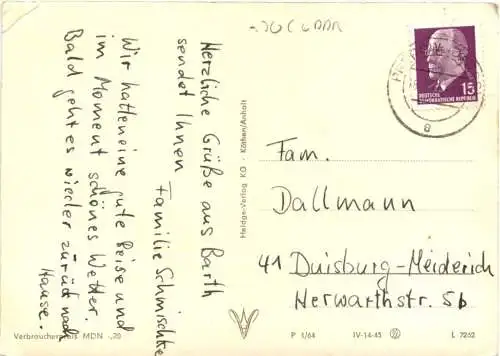 -,70 C 6 DDR
15
DEUTSCHE
DEMOKRATISCHE REPUBLIK
a
Herzliche Grüße aus Barth
sendet Ihnen
Familie Schmischke
Wir hatten eine gute Reise und
im Moment schönes Wetter.
Bald geht es wieder zurück nach
Hause.
Heldge-Verlag KG - Köthen/Anhalt
Fam.
Dallmann
41 Duisburg-Meiderich
Herwarthstr. 5b
Verbraucherpreis MDN -,20
P 1/64 IV-14-45 L 7262